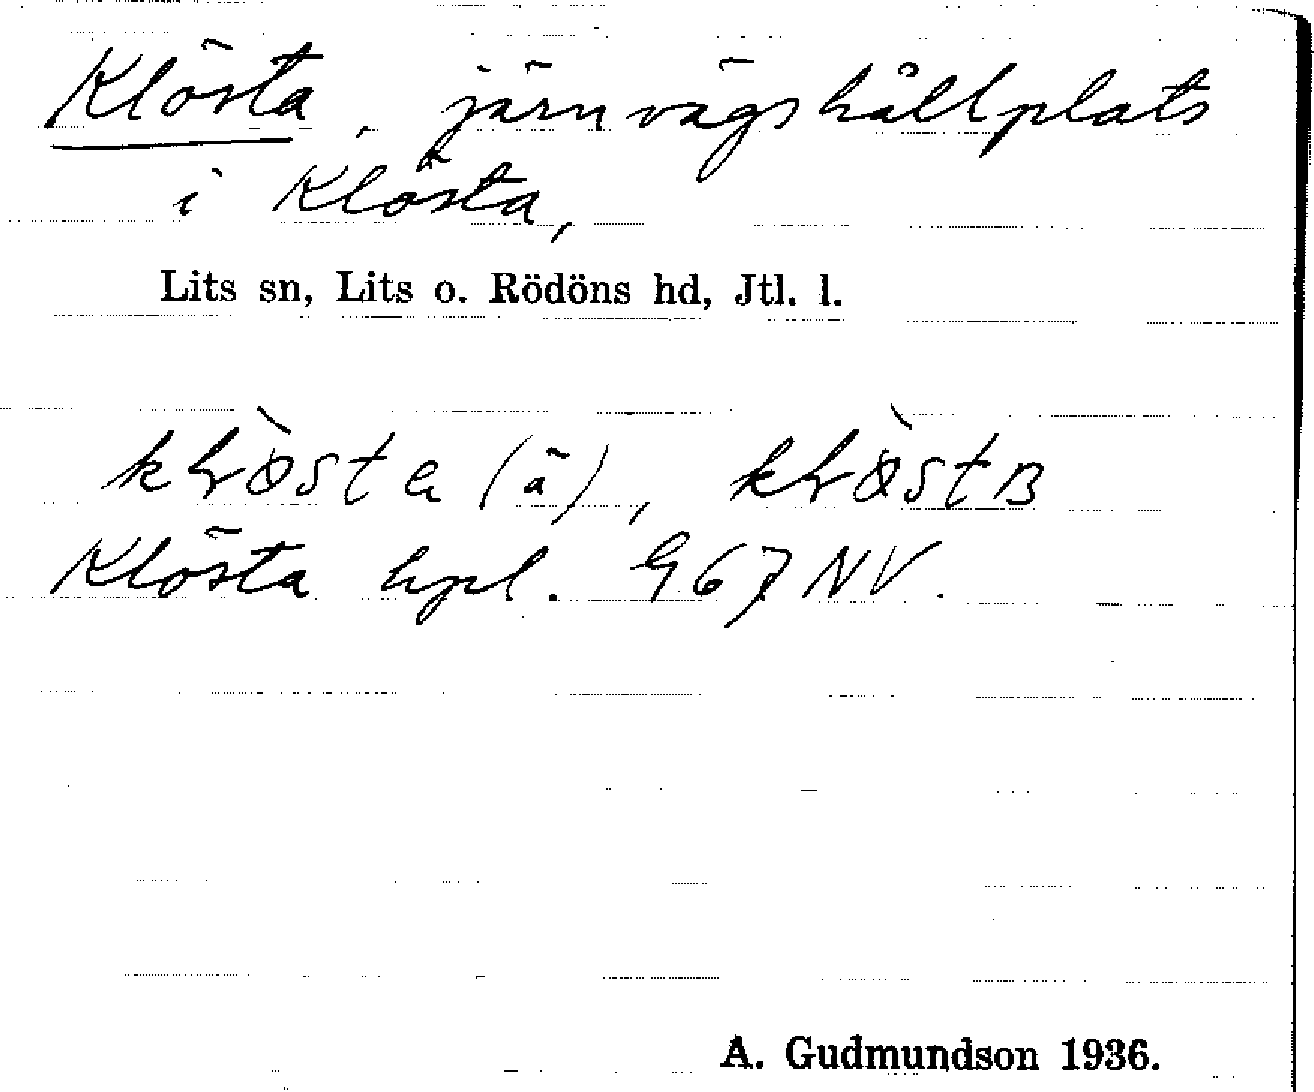 Klösta, järnvägshållplats
i Klösta,
Lits sn, Lits o. Rödöns hd, Jtl. l.
(ä),
Klösta hpl. 967 NV.
A. Gudmundson 1936.